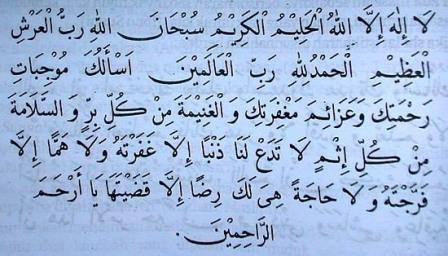 لَا إِلٰهَ إِلَّا اللهُ الْحَلِيْمُ الْكَرِيْمُ سُبْحَانَ اللهِ رَبُّ الْعَرْشِ
الْعَظِيْمِ الْحَمْدُ لِلّٰهِ رَبِّ الْعَالَمِيْنَ اَسْأَلُكَ مُوْجِبَاتِ
رَحْمَتِكَ وَعَزَائِمَ مَغْفَرَتِكَ وَ الْغَنِيْمَةَ مِنْ كُلِّ بِرٍّ وَ السَّلَامَةَ
مِنْ كُلِّ إِثْمٍ لَا تَدَعْ لَنَا ذَنْبًا إِلَّا غَفَرْتَهُ وَلَا هَمًّا إِلَّا
فَرَّجْتَهُ وَ لَا حَاجَةً هِىَ لَكَ رِضًا إِلَّا قَضَيْتَهَا يَا أَرْحَمَ
الرَّاحِمِيْنَ.